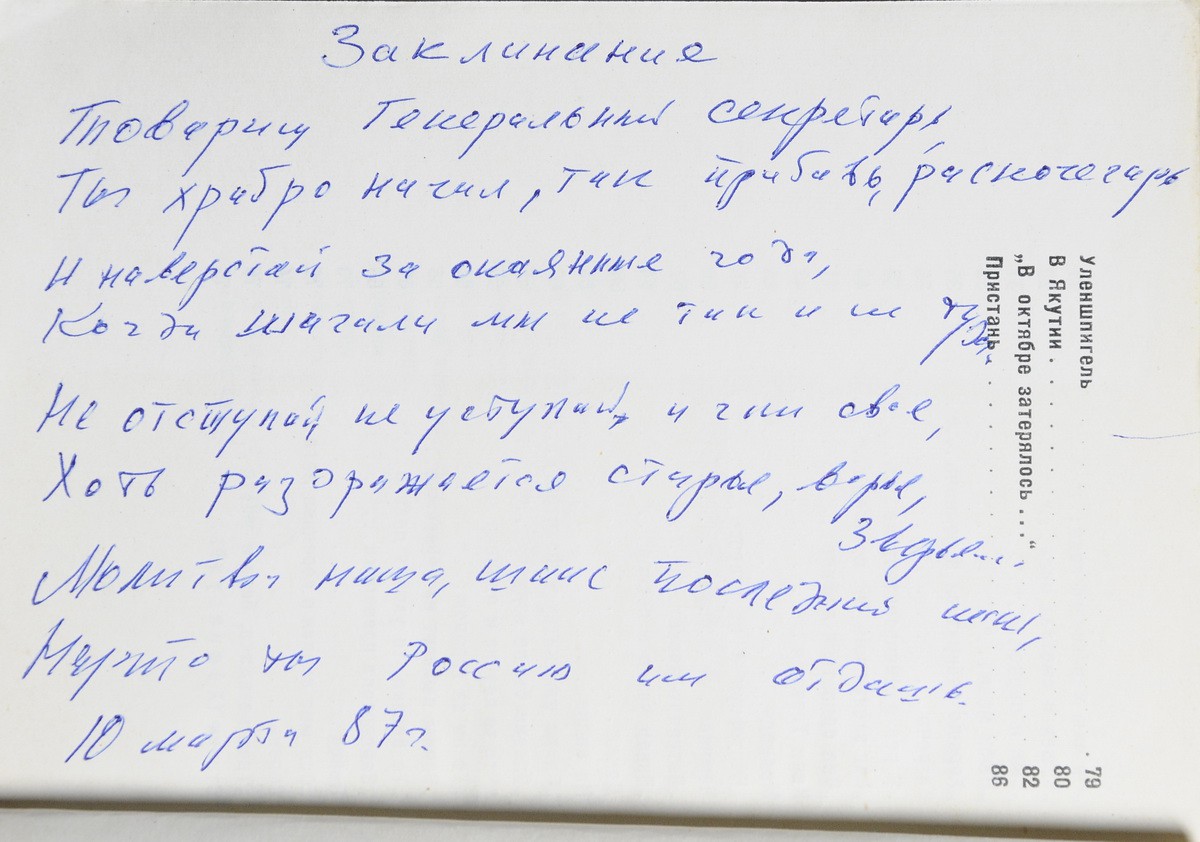 Заклинание
Товарищ Генеральный секретарь,
Ты храбро начал, так прибавь, раскочегарь
И наверстай за окаянные года,
Когда шагали мы не так и не туда.
Не отступай, не уступай, и гни свое,
Хоть раздражается старье, ворье,
зверье...
Молитва наша, шанс последний наш,
Неужто ты Россию им отдашь.
10 марта 87 г.
Уленшпигель 79
В Якутии . . . . . . 80
„В октябре затерялось ...“ 82
Пристань . . . . . . 86